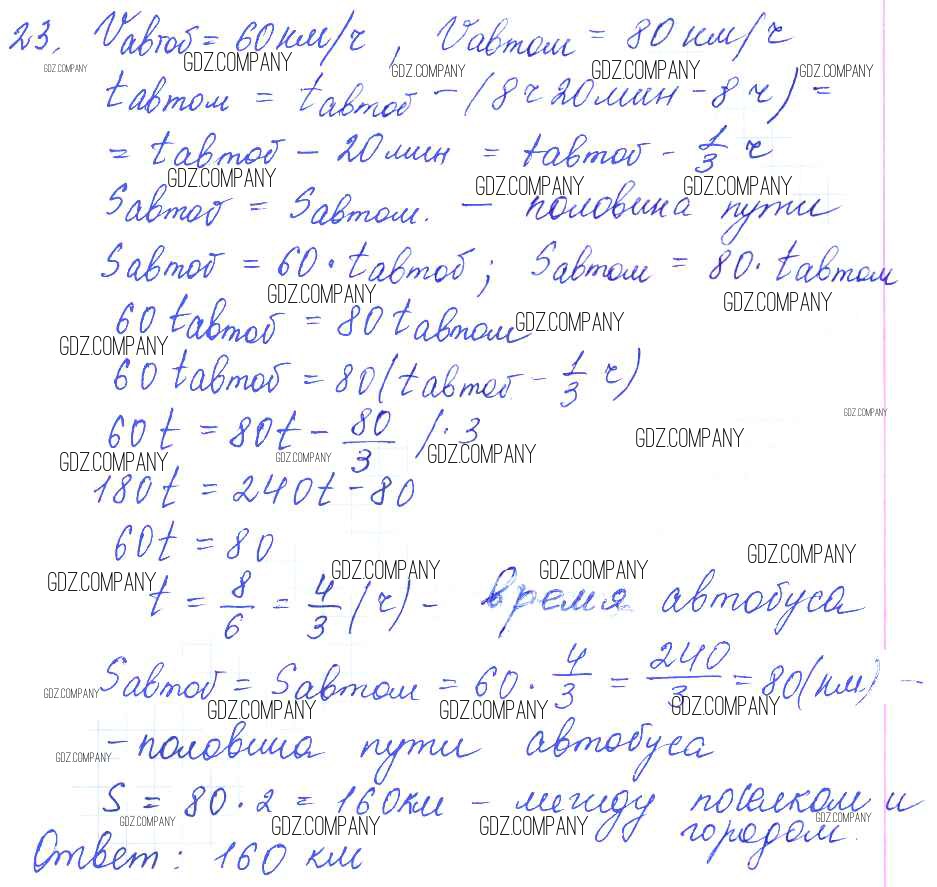 23. Vавтоб = 60 км/ч, Vавтом = 80 км/ч
GDZ.COMPANY GDZ.COMPANY GDZ.COMPANY GDZ.COMPANY GDZ.COMPANY
tавтом = tавтоб − (8 ч 20 мин − 8 ч) =
= tавтоб − 20 мин = tавтоб − 1/3 ч
GDZ.COMPANY GDZ.COMPANY GDZ.COMPANY
Sавтоб = Sавтом. — половина пути
Sавтоб = 60 · tавтоб; Sавтом = 80 · tавтом
GDZ.COMPANY GDZ.COMPANY
60 tавтоб = 80 tавтом GDZ.COMPANY
GDZ.COMPANY
60 tавтоб = 80(tавтоб − 1/3 ч)
GDZ.COMPANY
60t = 80t − 80/3 /· 3
GDZ.COMPANY GDZ.COMPANY GDZ.COMPANY GDZ.COMPANY
180t = 240t − 80
60t = 80
GDZ.COMPANY
GDZ.COMPANY GDZ.COMPANY GDZ.COMPANY
t = 8/6 = 4/3 (ч) − время автобуса
Sавтоб = Sавтом = 60 · 4/3 = 240/3 = 80(км) −
GDZ.COMPANY GDZ.COMPANY GDZ.COMPANY GDZ.COMPANY
− половина пути автобуса
GDZ.COMPANY
S = 80 · 2 = 160км − между поселком и
городом.
GDZ.COMPANY GDZ.COMPANY GDZ.COMPANY GDZ.COMPANY
Ответ: 160 км